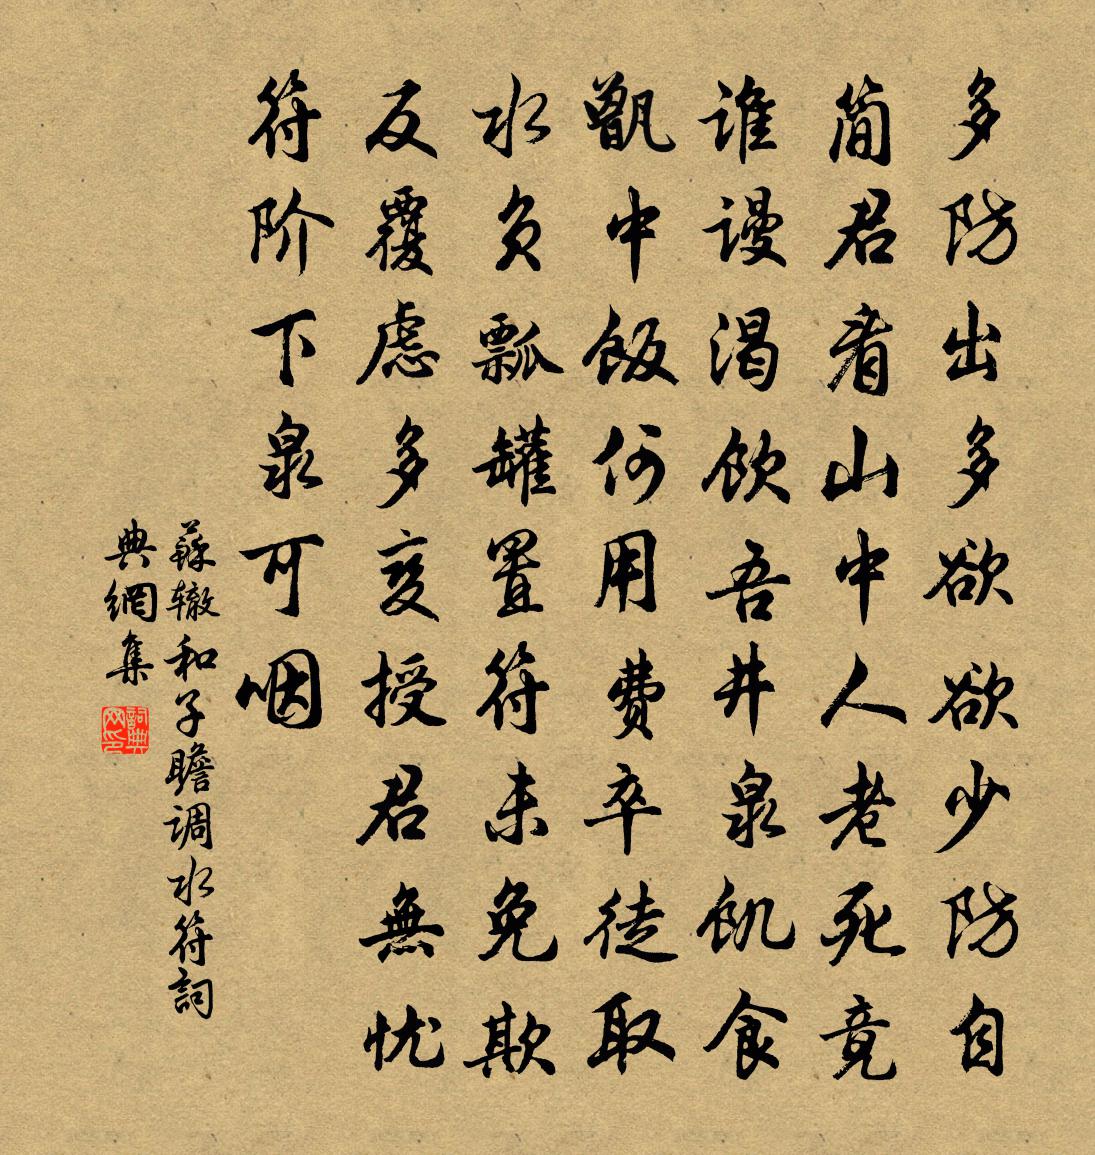 多防出多欲欲少防自
简君看山中人老死竟
谁谩渴饮吾井泉饥食
甑中饭何用费卒徒取
水负瓢罐置符未免欺
反覆虑多变授君無忧
符阶下泉可咽
蘇辙和子瞻调水符詞
典網集
詞典网印